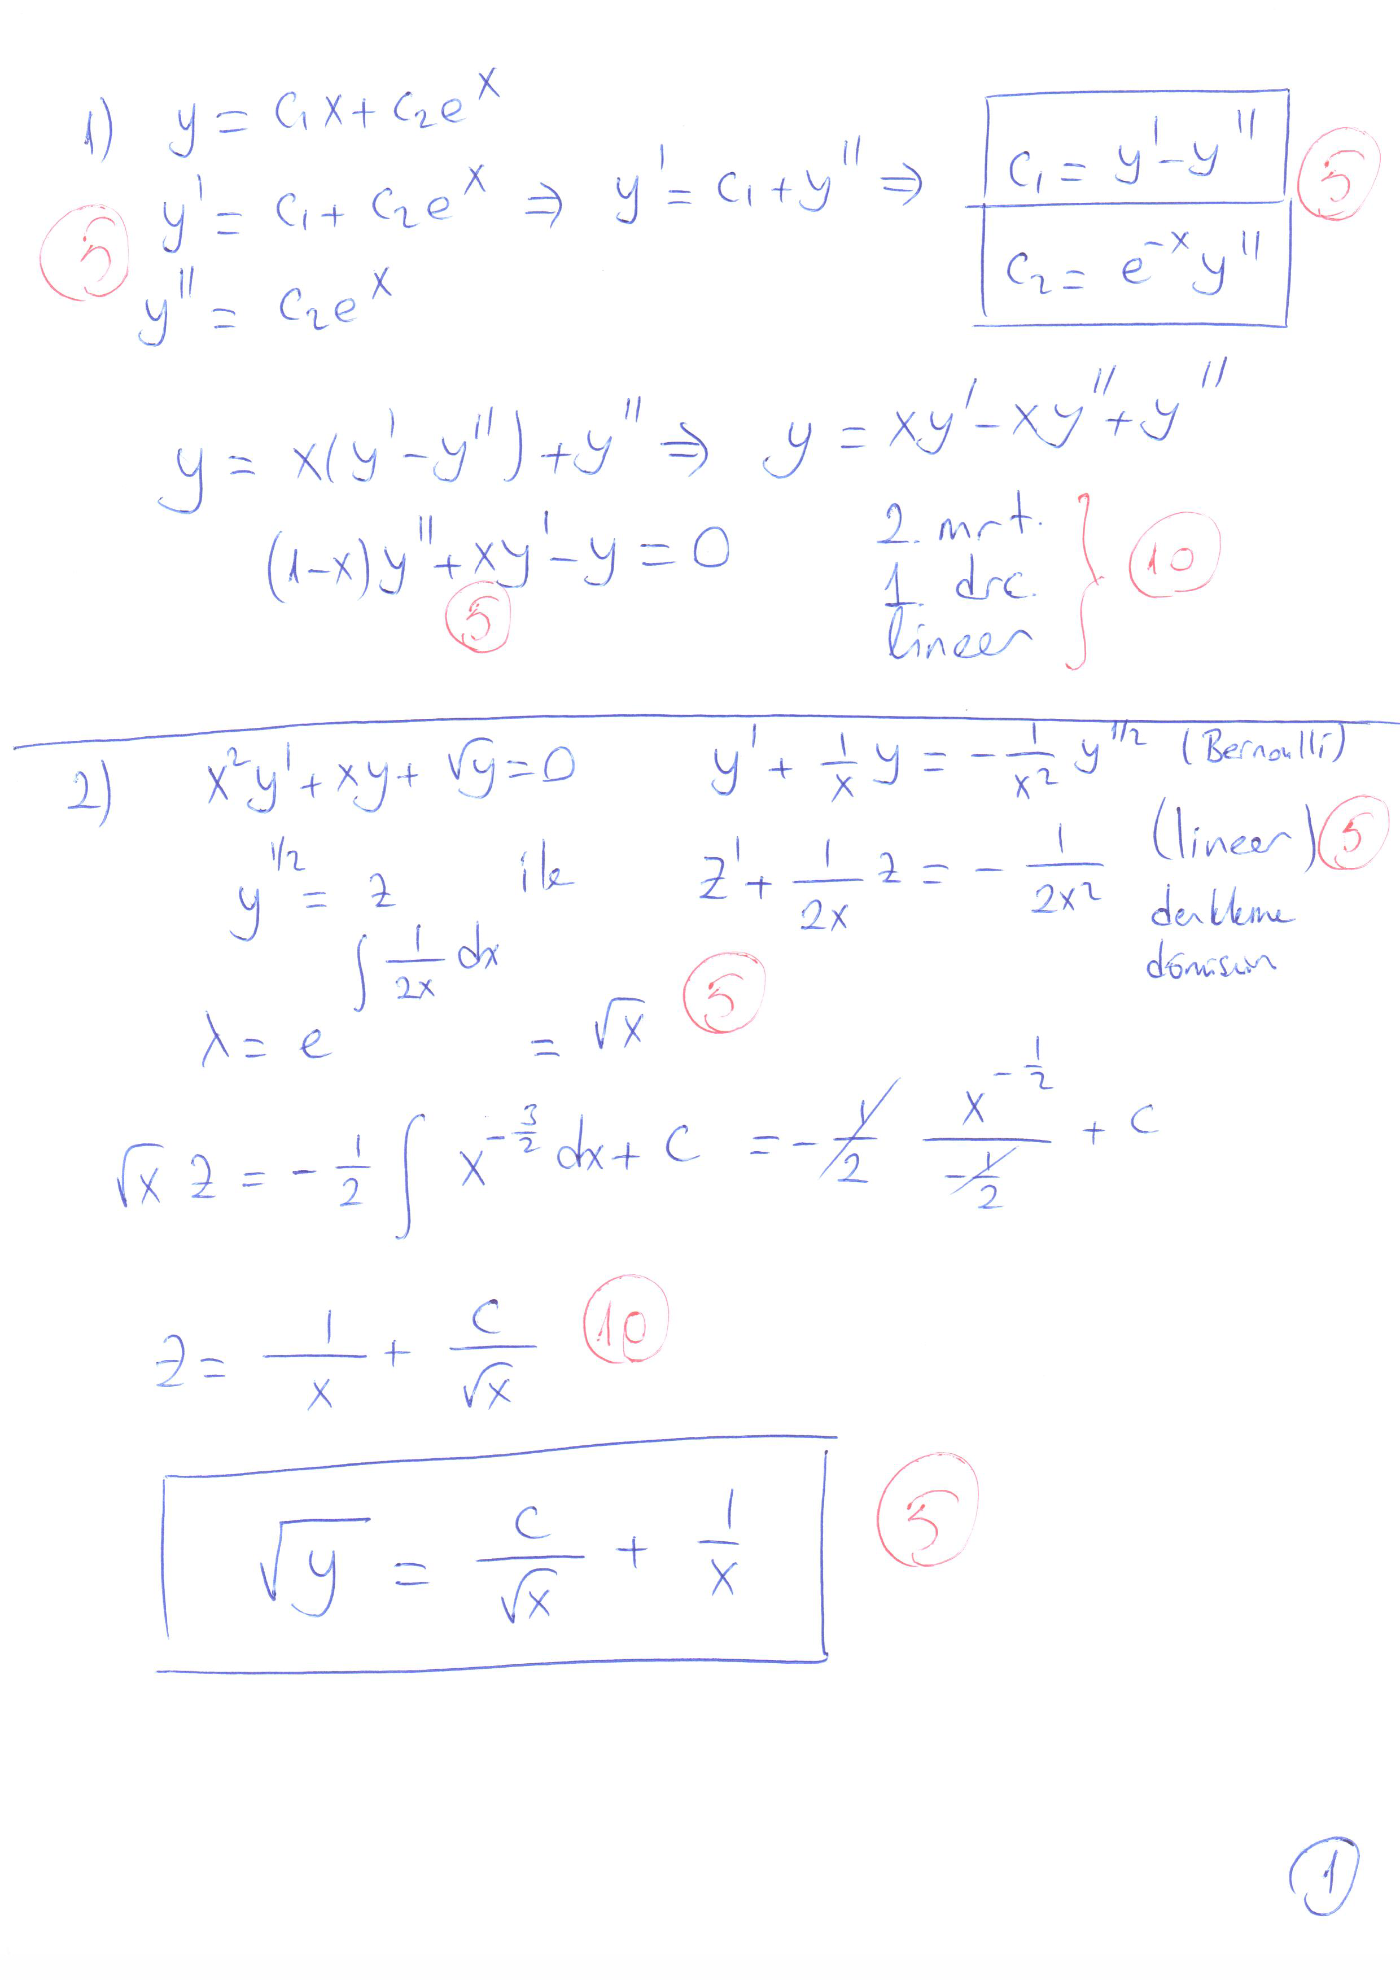 1) y = c₁x + c₂eˣ
y' = c₁ + c₂eˣ ⇒ y' = c₁ + y'' ⇒ c₁ = y' - y'' 5
5
y'' = c₂eˣ c₂ = e⁻ˣy''
y = x(y' - y'') + y'' ⇒ y = xy' - xy'' + y''
(1-x)y'' + xy' - y = 0 2. mrt.
5 1. drc. 10
lineer
2) x²y' + xy + √y = 0 y' + 1/x y = - 1/x² y^1/2 (Bernoulli)
y^1/2 = z ile z' + 1/2x z = - 1/2x² (lineer) 5
denkleme
dönüşsün
λ = e^∫ 1/2x dx = √x 5
√x z = - 1/2 ∫ x^-3/2 dx + c = - 1/2 x^-1/2 / -1/2 + c
z = 1/x + c/√x 10
√y = c/√x + 1/x 5
1